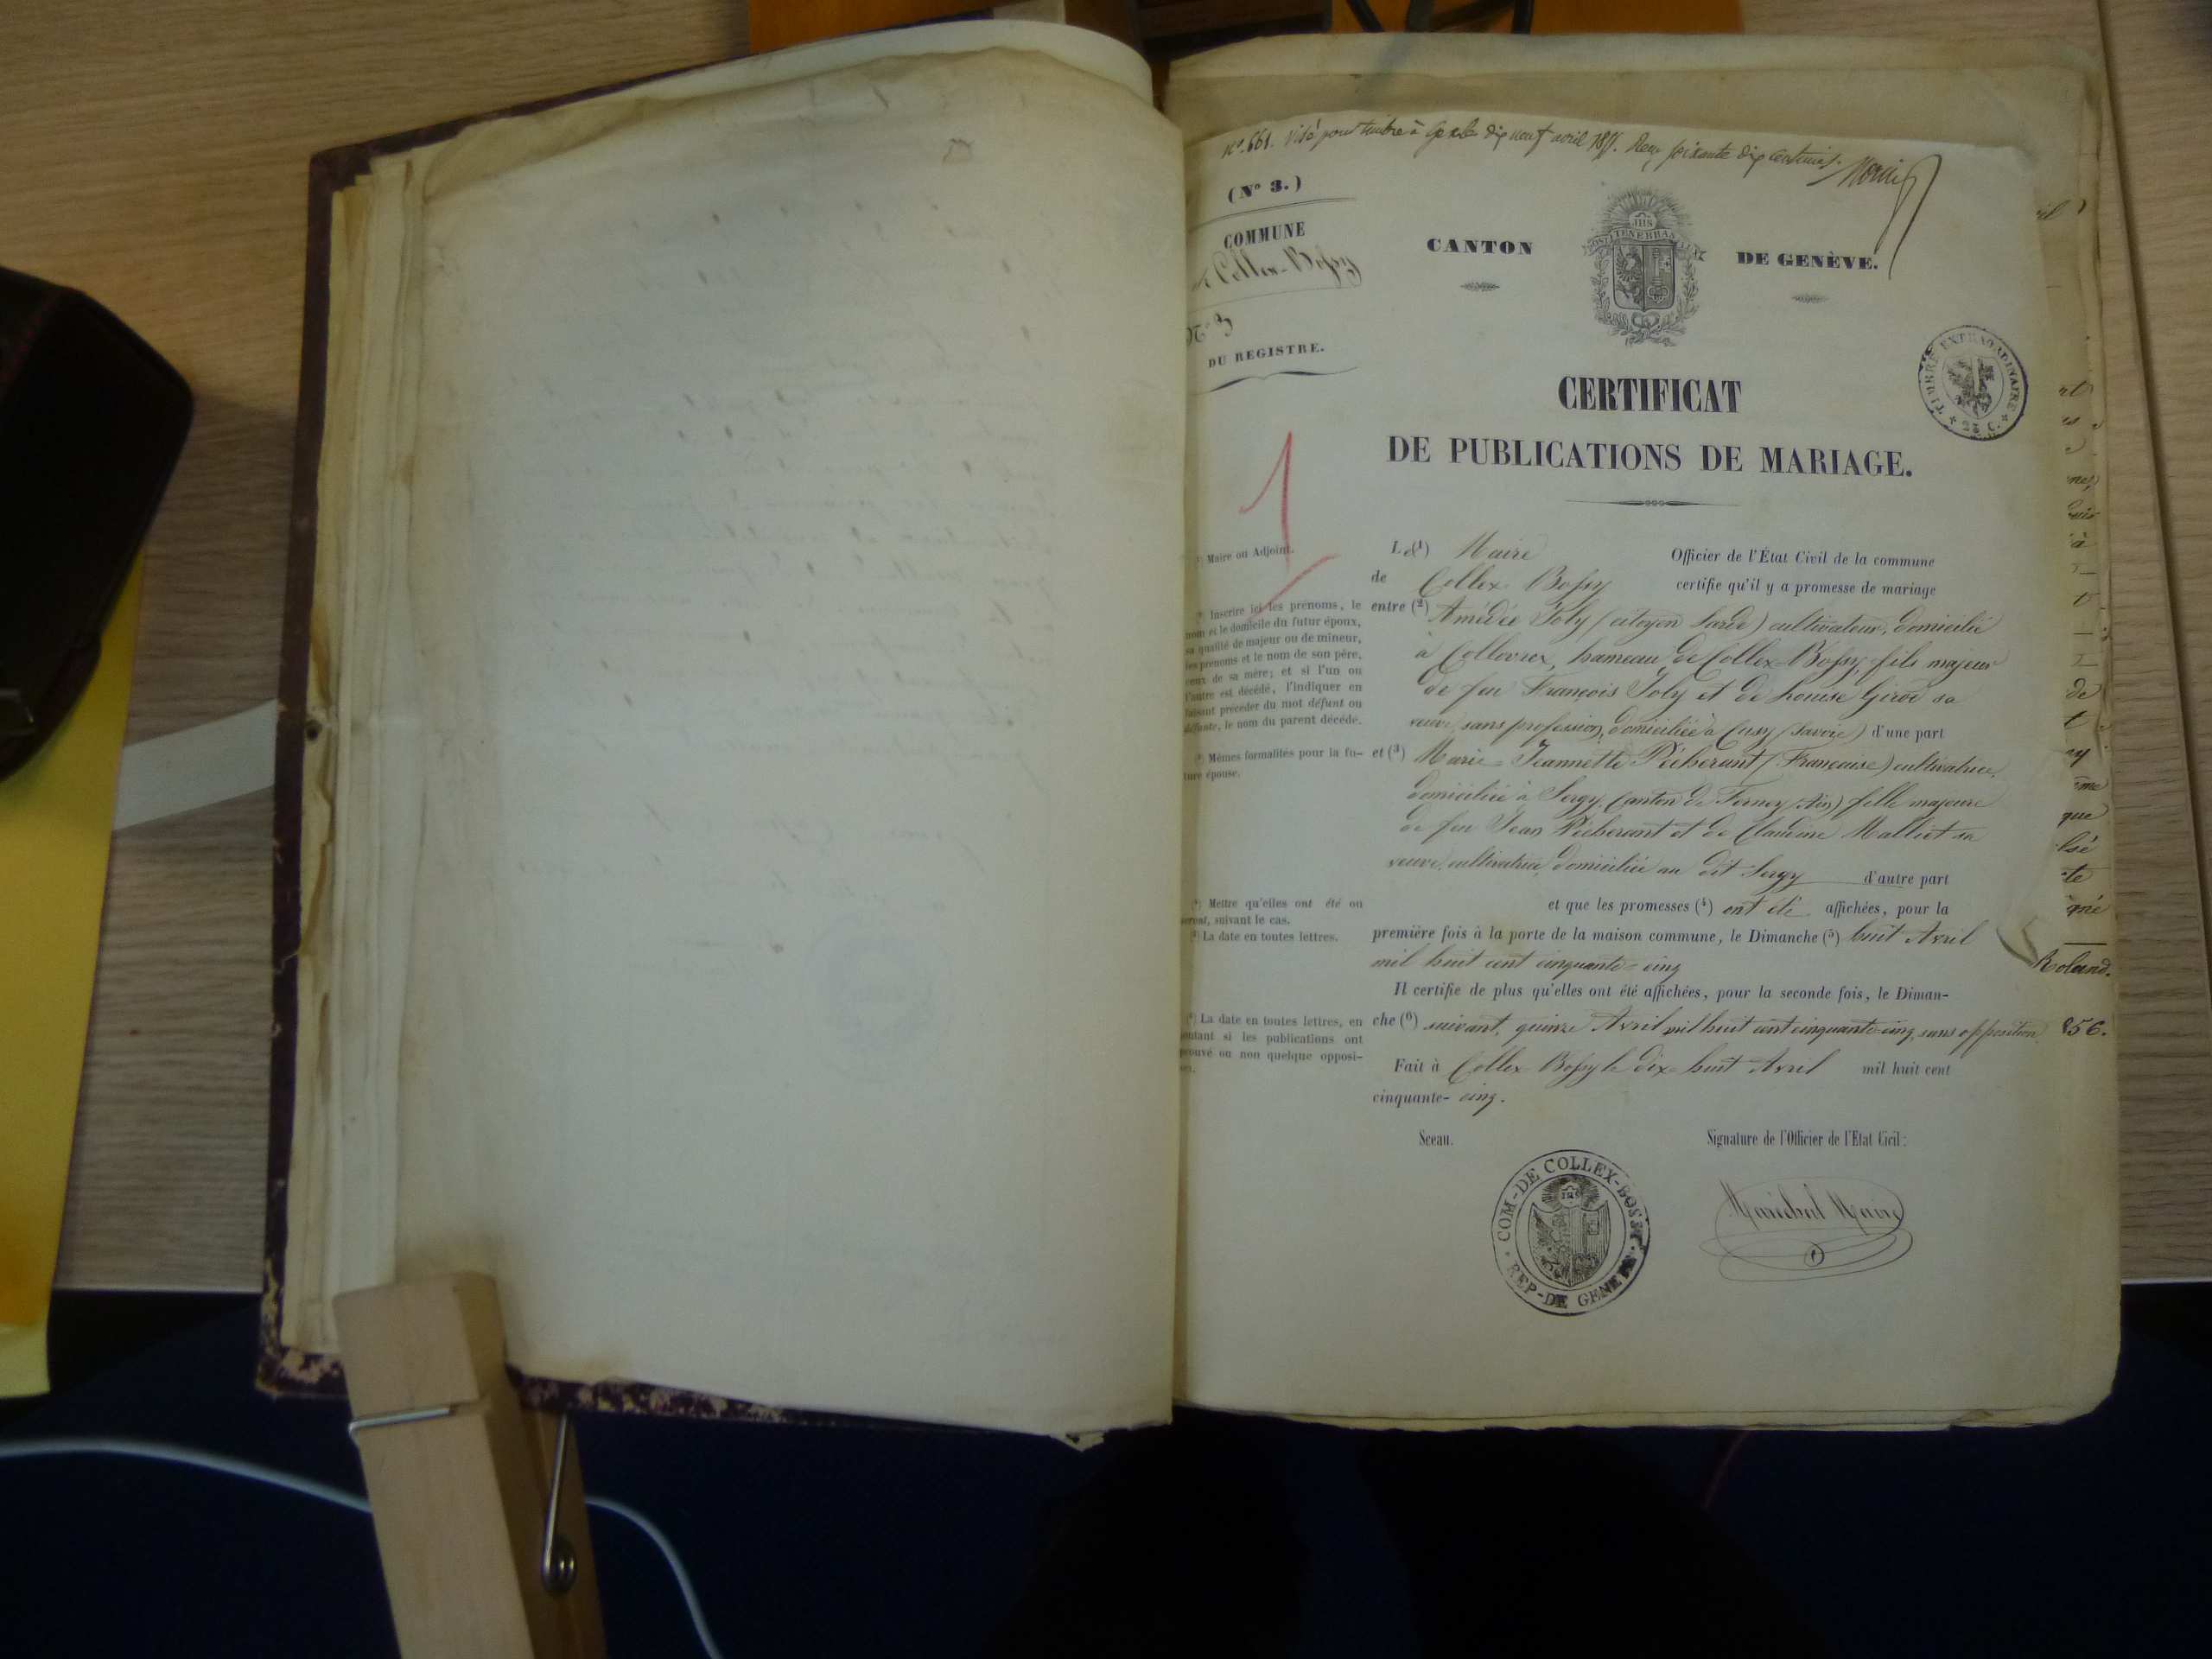 N°. 661. Visé pour timbre à Gex le dix neuf avril 1855. Reçu soixante dix centimes.
(N° 3.)
COMMUNE
de Collex-Bossy
N° 3
DU REGISTRE.
CANTON DE GENÈVE.
POST TENEBRAS LUX
IHS
TIMBRE EXTRAORDINAIRE
25 C.
CERTIFICAT
DE PUBLICATIONS DE MARIAGE.
1
Maire ou Adjoint.
Le (1) Maire Officier de l'État Civil de la commune
de Collex Bossy certifie qu'il y a promesse de mariage
entre (2) Amédée Joly (citoyen Sarde) cultivateur, domicilié
à Collovrex, hameau de Collex-Bossy, fils majeur
de feu François Joly et de Louise Girod sa
veuve, sans profession, domiciliée à Cusy (Savoie) d'une part
et (3) Marie Jeannette Pécherant (Française) cultivatrice,
domiciliée à Sergy, Canton de Ferney (Ain) fille majeure
de feu Jean Pécherant et de Claudine Malliet sa
veuve, cultivatrice, domiciliée au dit Sergy d'autre part
et que les promesses (4) ont été affichées, pour la
première fois à la porte de la maison commune, le Dimanche (5) huit Avril
mil huit cent cinquante-cinq
Il certifie de plus qu'elles ont été affichées, pour la seconde fois, le Diman-
che (6) suivant, quinze Avril mil huit cent cinquante-cinq, sans opposition
Fait à Collex Bossy le dix-huit Avril mil huit cent
cinquante- cinq.
Inscrire ici les prénoms, le
nom et le domicile du futur époux,
sa qualité de majeur ou de mineur,
les prénoms et le nom de son père,
ceux de sa mère; et si l'un ou
l'autre est décédé, l'indiquer en
faisant précéder du mot défunt ou
défunte, le nom du parent décédé.
Mêmes formalités pour la fu-
ture épouse.
Mettre qu'elles ont été ou
seront, suivant le cas.
La date en toutes lettres.
La date en toutes lettres, en
ajoutant si les publications ont
éprouvé ou non quelque opposi-
tion.
Sceau.
Signature de l'Officier de l'État Civil:
COM-DE COLLEX-BOSSY
REP-DE GENEVE
Maréchal Maire
que
Roland.
856.